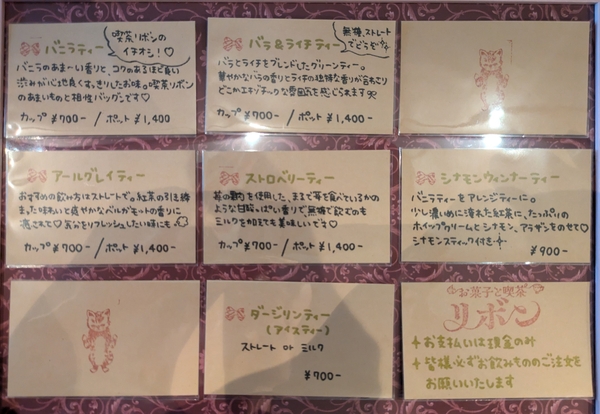 バニラティー
喫茶リボンの
イチオシ！♡
バニラのあま〜い香りと、コクのあるほど良い
渋みが心地良くすっきりしたお味。喫茶リボン
のあまいものと相性バツグンです♡
カップ ¥700- / ポット ¥1,400
バラ&ライチティー
無糖、ストレート
でどうぞ
バラとライチをブレンドしたグリーンティー。
華やかなバラの香りとライチの独特な香りが合わさり
どこかエキゾチックな雰囲気を感じられます
カップ ¥700- / ポット ¥1,400-
アールグレイティー
おすすめの飲み方はストレートで。紅茶の引き締
まった味わいと爽やかなベルガモットの香りに
癒されて♡気分をリフレッシュしたい時にも
カップ ¥700- / ポット ¥1,400-
ストロベリーティー
苺の を使用した、まるで苺を食べているかの
ような甘酸っぱい香りで、無糖で飲んでも
ミルクを加えても美味しいです
カップ ¥700- / ポット ¥1,400-
シナモンウィンナーティー
バニラティーをアレンジティーに。
少し濃いめに淹れた紅茶に、たっぷりの
ホイップクリームとシナモン、アラザンをのせて♡
シナモンスティック付き
¥900-
ダージリンティー
(アイスティー)
ストレート or ミルク
¥700-
お菓子と喫茶
リボン
+お支払いは現金のみ
+皆様必ずお飲みもののご注文を
お願いいたします